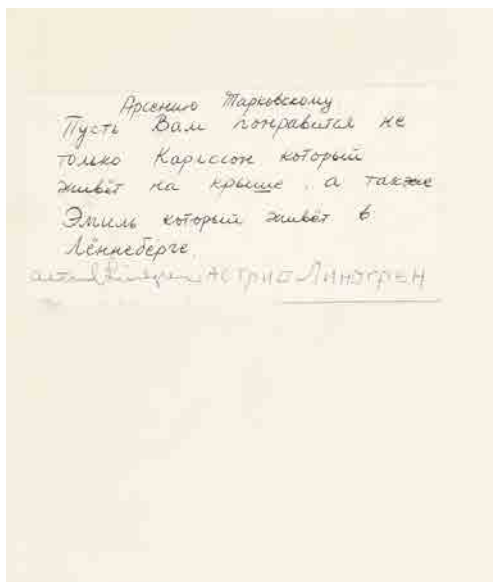 Арсению Тарковскому
Пусть Вам понравится не
только Карлссон который
живёт на крыше, а также
Эмиль который живёт в
Лённеберге.
Astrid Lindgren АСТРИД ЛИНДГРЕН